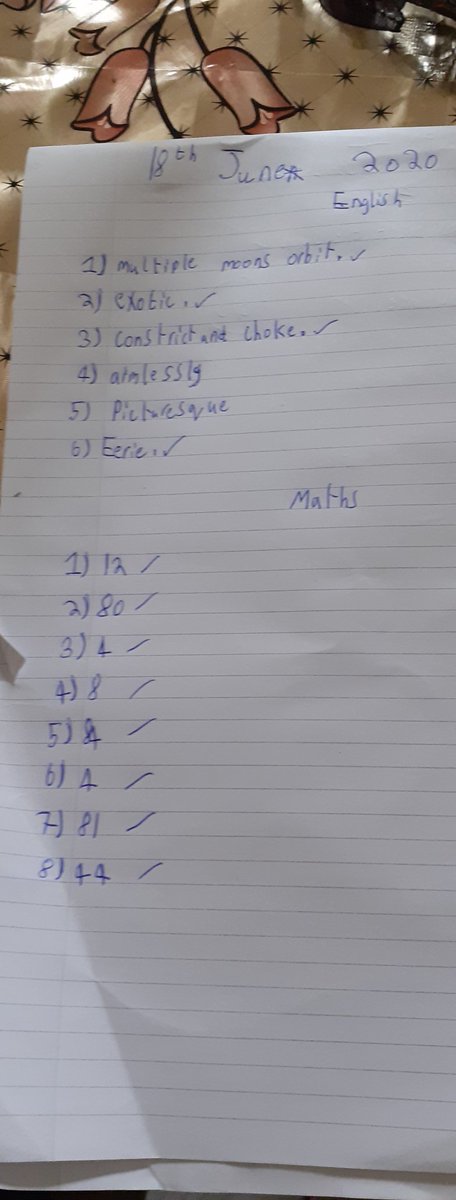 18th June 2020
English
1) multiple moons orbit. ✓
2) exotic. ✓
3) constrict and choke. ✓
4) aimlessly
5) Picturesque
6) Eerie. ✓
Maths
1) 12 ✓
2) 80 ✓
3) 4 ✓
4) 8 ✓
5) 4 ✓
6) 4 ✓
7) 81 ✓
8) 44 ✓